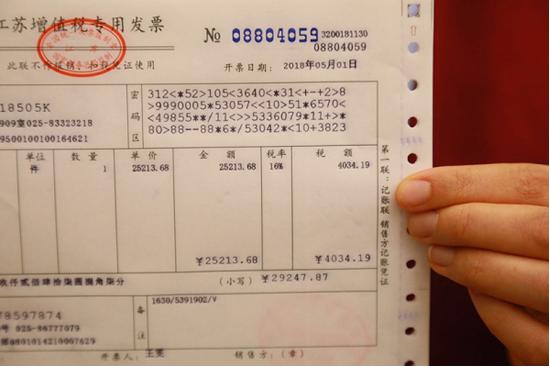 江苏增值税专用发票
№ 08804059 3200181130
08804059
此联不作报销、扣税凭证使用
开票日期: 2018年05月01日
18505K
909室025-83323218
9500100100164621
密码区
312<*52>105<3640<*31<+-+2>8
>9990005*53057<<10>51*6570<
<49855**/11<>>5336079*11+>*
80>88--88*6/53042*<10+3823
单位 数量 单价 金额 税率 税额
件 1 25213.68 25213.68 16% 4034.19
¥25213.68 ¥4034.19
玖仟贰佰肆拾柒圆捌角柒分
(小写) ¥29247.87
78597874
号 025-86777079
0101014210007629
备注
1630/5391902/V
开票人: 王雯
销售方: (章)
第一联:记账联 销售方记账凭证